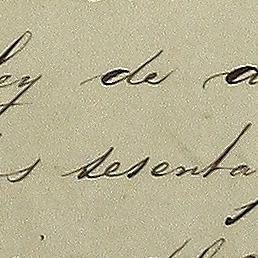 ley de a
s sesenta